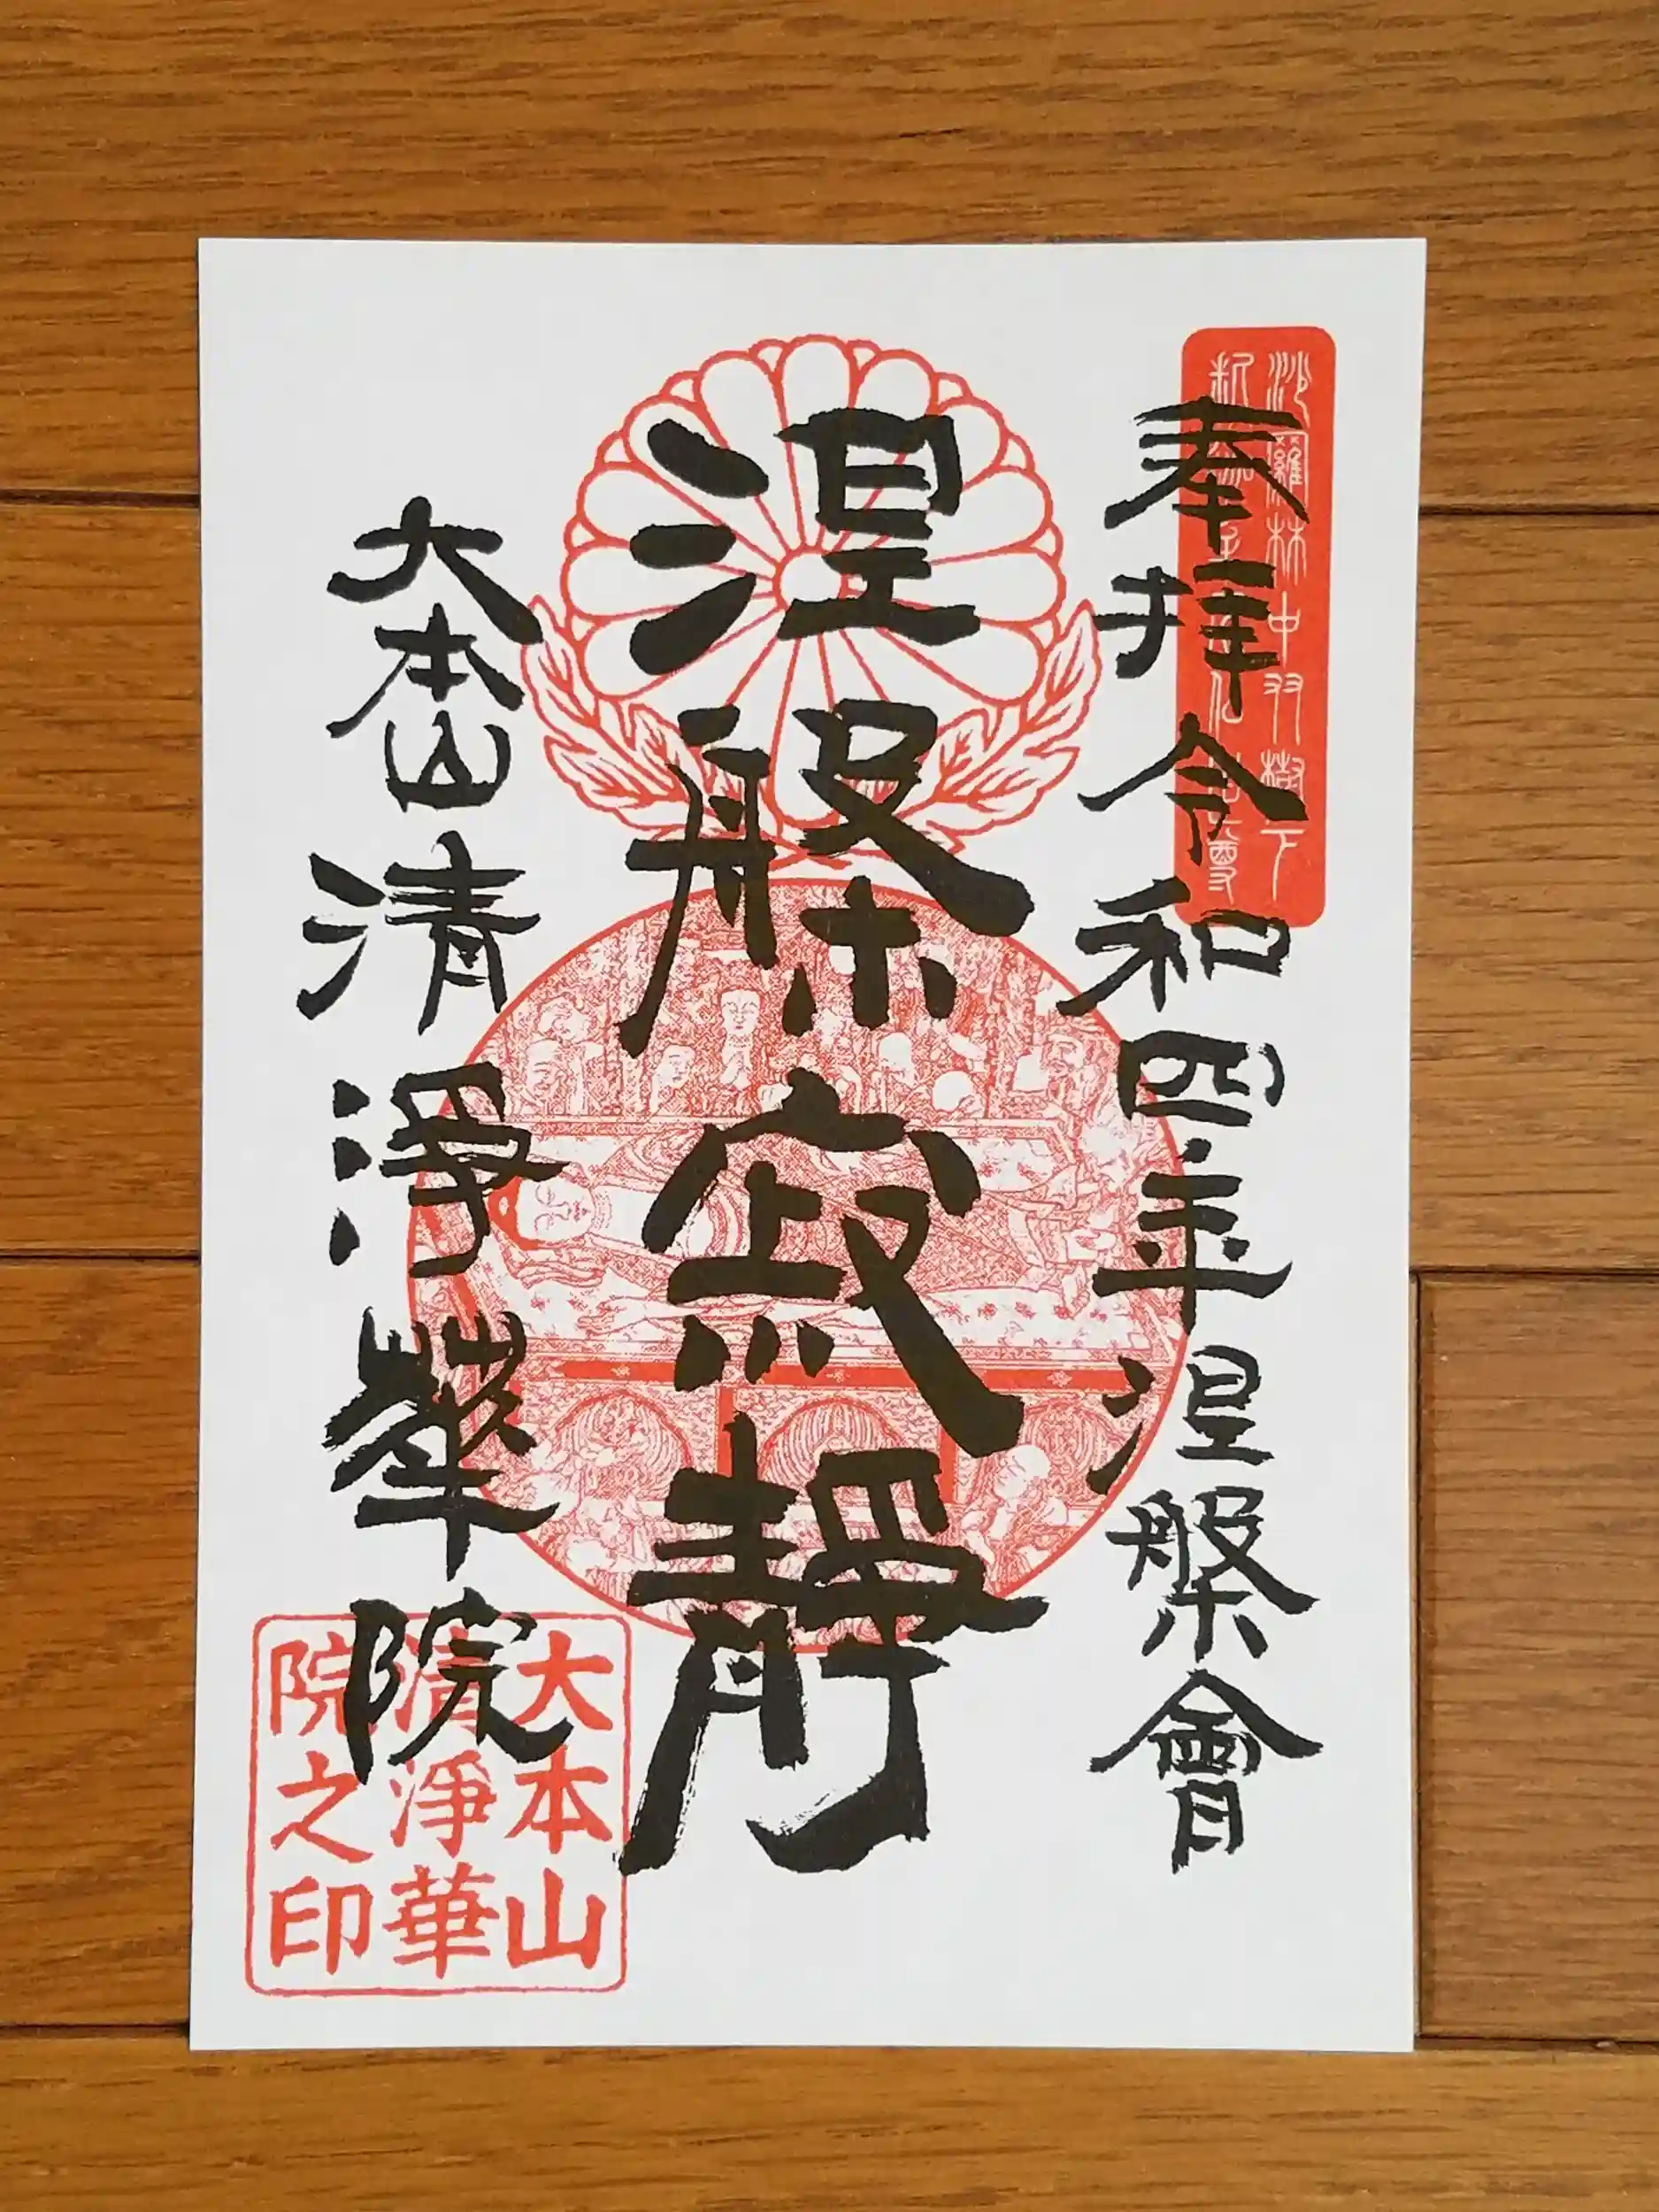 奉拝 令和四年涅槃會
涅槃寂靜
大本山 清淨華院
沙羅林中双樹下
大本山
清淨華
院之印